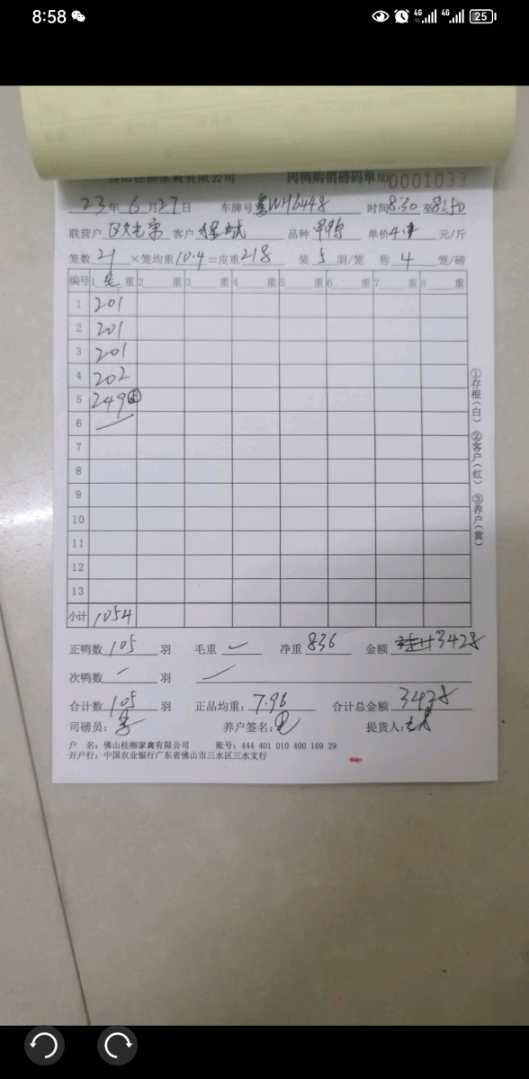 8:58
4G 4G 25
肉鸭购销磅码单 NO 0001033
23年6月27日 车牌号 WH6448 时间8:30至8:50
联营户 客户 品种 单价4.1元/斤
笼数21×笼均重10.4=皮重218 装5羽/笼 称4笼/磅
编号 1 重 2 重 3 重 4 重 5 重 6 重 7 重 8 重
1 201
2 201
3 201
4 202
5 249
6
7
8
9
10
11
12
13
小计 1054
①存根(白) ②客户(红) ③养户(黄)
正鸭数105羽 毛重 净重836 金额3428
次鸭数 羽
合计数105羽 正品均重:7.96 合计总金额3428
司磅员: 养户签名: 提货人:
户 名:佛山桂柳家禽有限公司 账号:444 401 010 400 169 29
开户行:中国农业银行广东省佛山市三水区三水支行